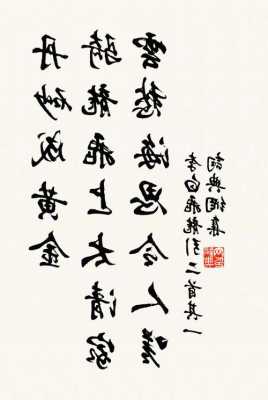 丹砂成黃金
騎龍飛上太清家
雲愁海思令人嗟
李白飛龍引二首其一
詞典網集